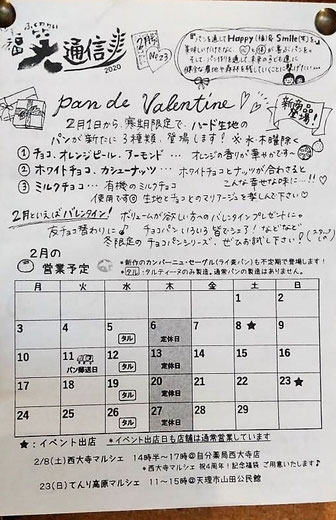 ふくわらい
福笑通信
2020
2月号
No.23
『パンを通してHappy(福)&Smile(笑)を
pan de Valentine♡
新商品
登場!
2月1日から、寒期限定で、ハード生地の
パンが新たに3種類、登場します! ※水木曜除く
①チョコ、オレンジピール、アーモンド … オレンジの香りが華やかです~
②ホワイトチョコ、カシューナッツ … ホワイトチョコとナッツが合わさると
こんな幸せな味に…!!♡
③ミルクチョコ … 有機のミルクチョコ
使用です◎ 生地とチョコとのマリアージュを楽しんで下さい♡
2月といえばバレンタイン! ボリュームが欲しい方へのバレンタインプレゼントに。
友チョコ替わりに♪ チョコパンいろいろ皆でシェア! などなど
冬限定のチョコパンシリーズ、ぜひお試し下さい?!
2月の
営業予定
*新作のカンパーニュ・セーグル(ライ麦パン)も不定期で登場します!
*タル:タルティーヌのみ製造。通常パンの製造はありません。
月 火 水 木 金 土 日
1 2
3 4 5 6 7 8★ 9
タル 定休日
10 11 12 13 14 15 16
パン郵送日 タル 定休日
17 18 19 20 21 22 23★
タル 定休日
24 25 26 27 28 29
タル 定休日
★:イベント出店 *イベント出店日も店舗は通常営業しています
2/8(土)西大寺マルシェ 14時半~17時@自分薬局西大寺店
*西大寺マルシェ 祝4周年!記念福袋 ご用意いたします♪
23(日)てんり高原マルシェ 11~15時@天理市山田公民館